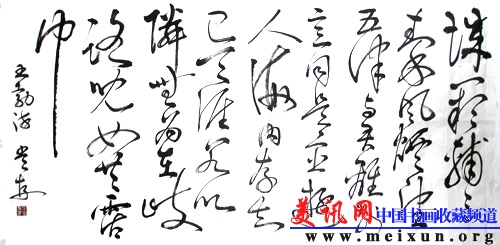 城闕輔三
秦風煙望
五津与君離别
意同是宦遊
人海内存知
己天涯若比
隣無為在歧
路兒女共霑
巾
王勃詩
美讯网 中国书画收藏频道
www.meixun.org